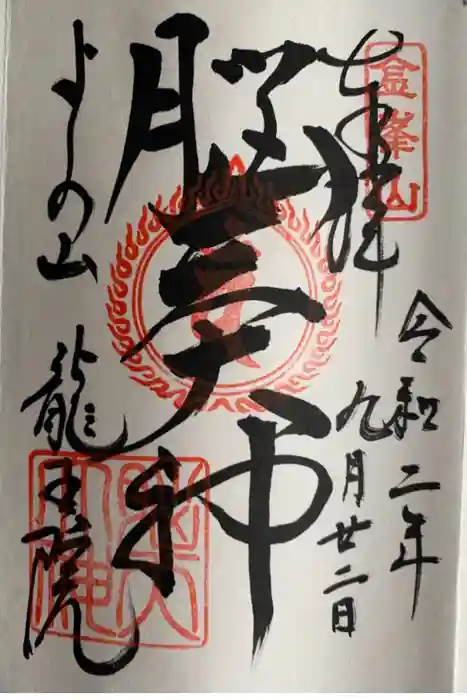 金峯山
奉拝
令和二年
九月廿二日
腦天大神
よしの山
龍王院